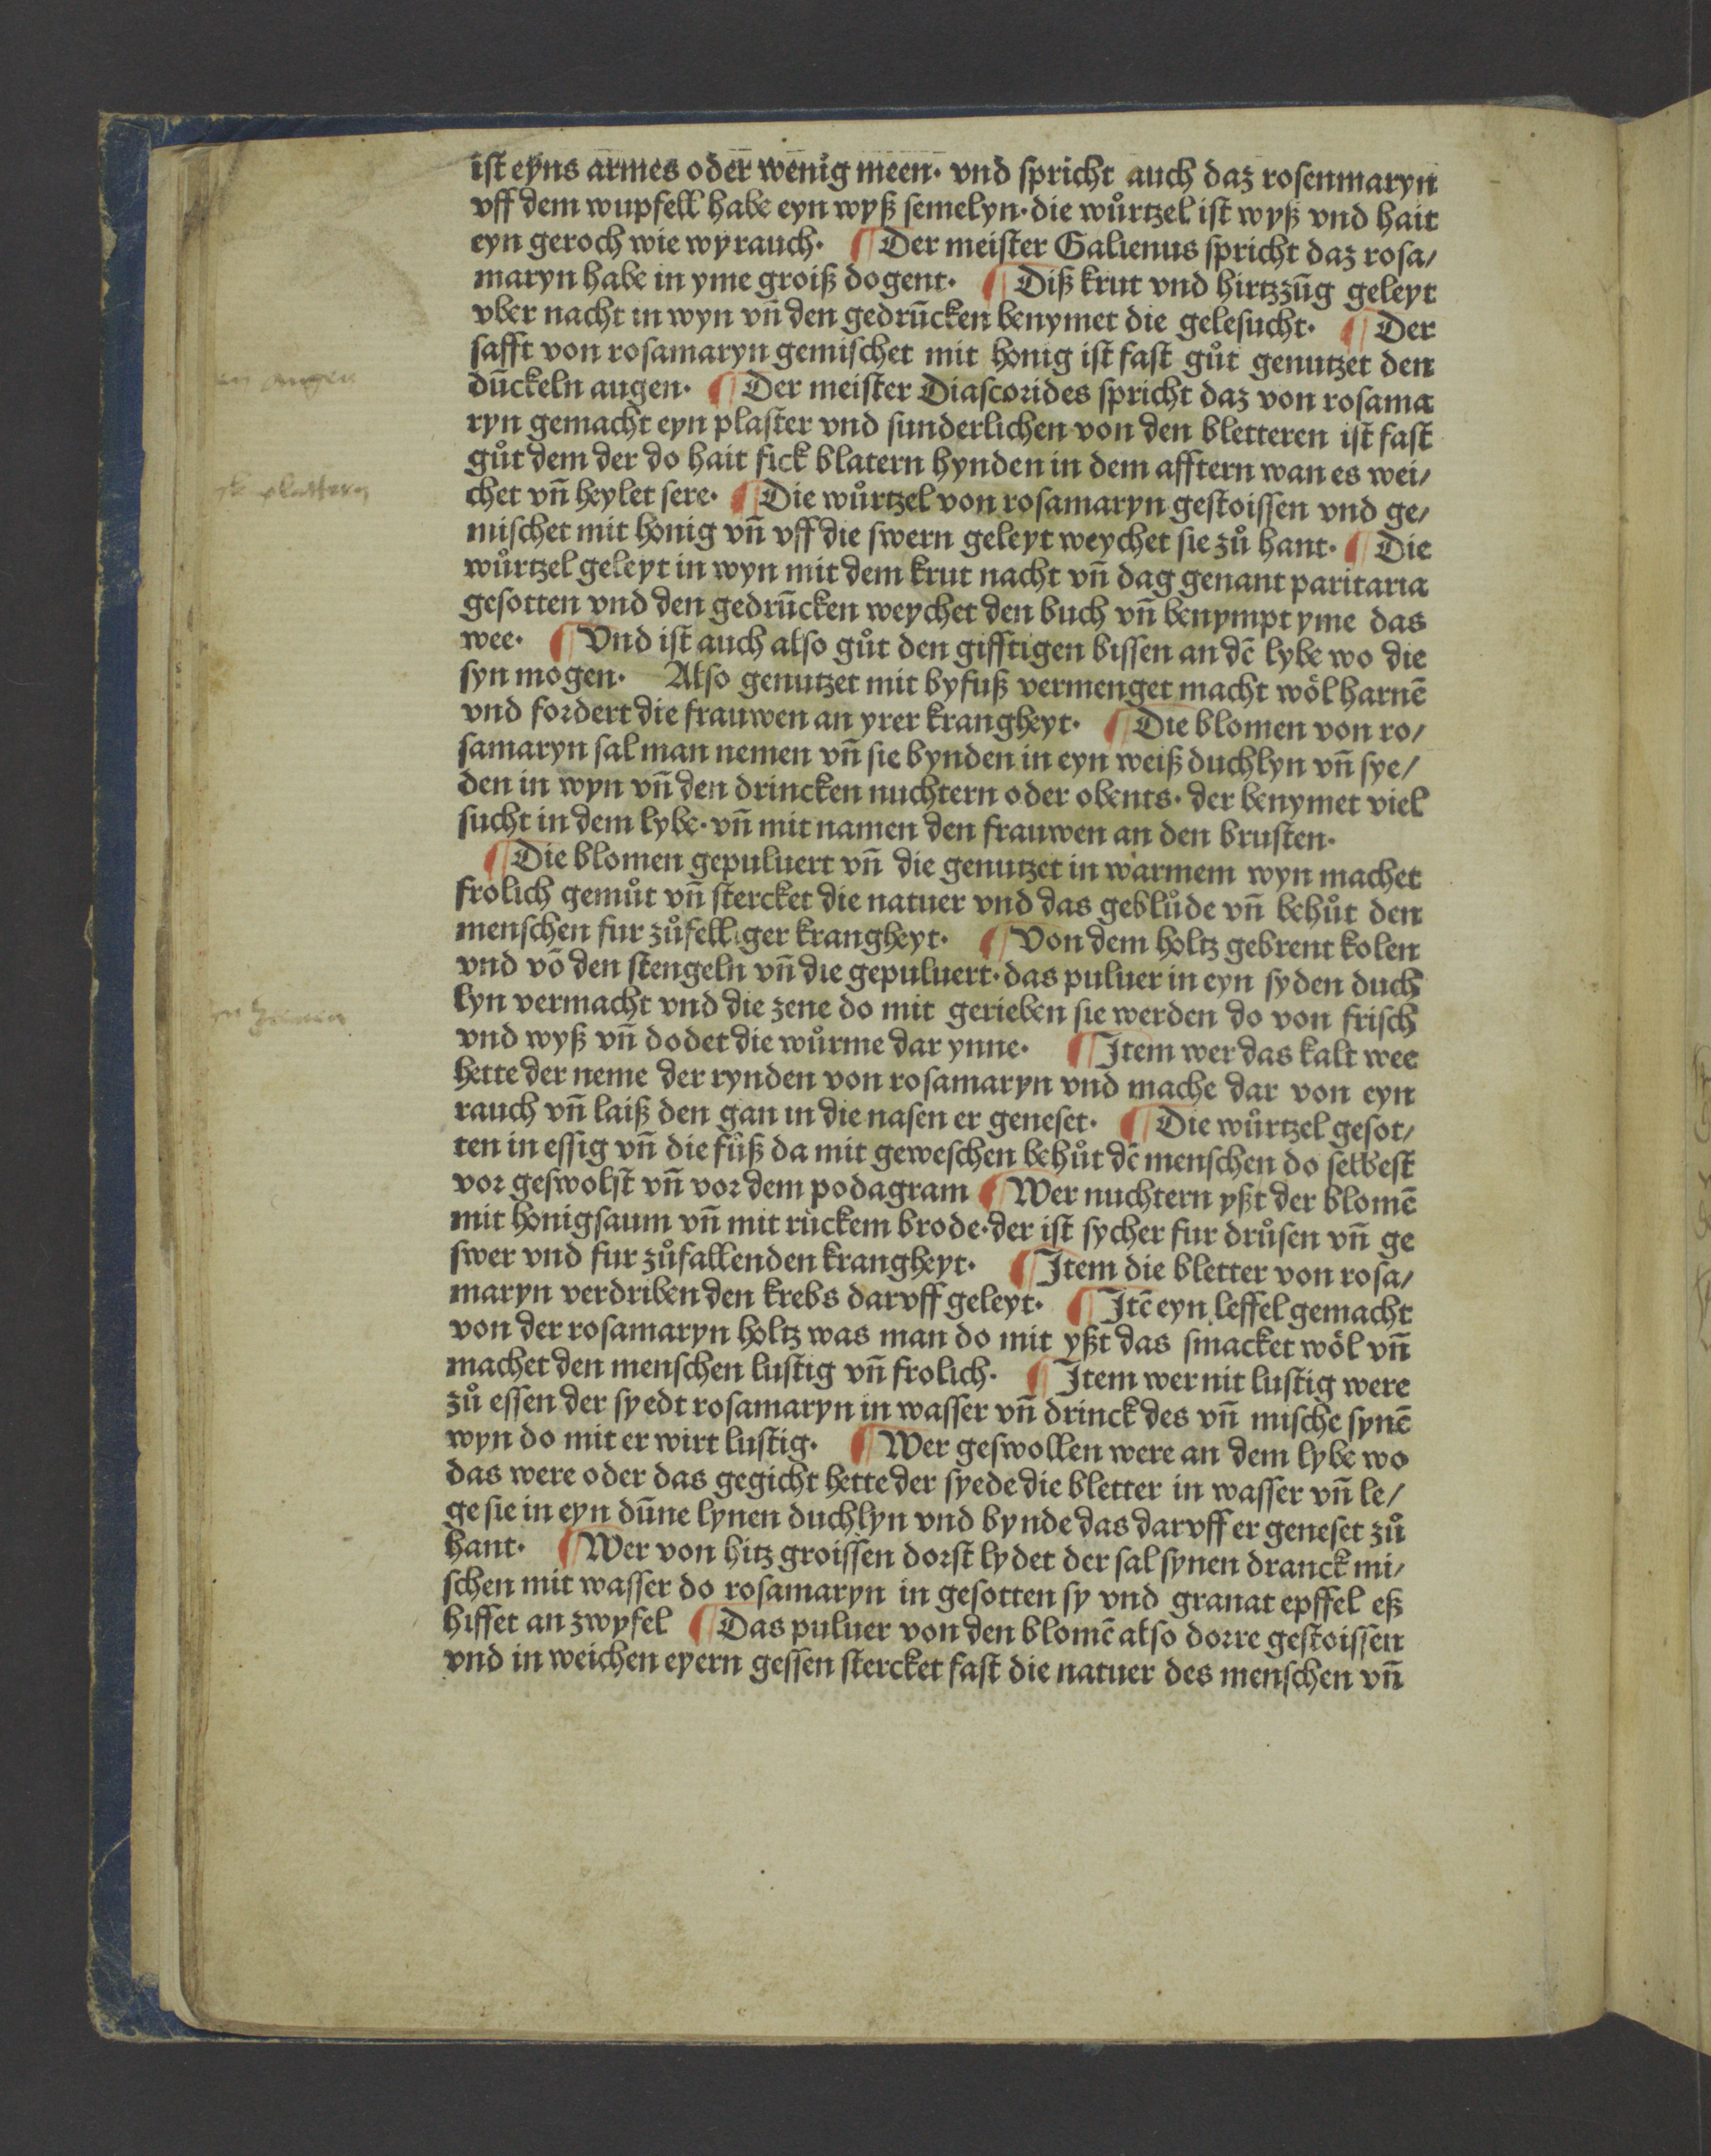 ist eyns armes oder wenig meen· vnd spricht auch daz rosenmaryn
vff dem wupfell habe eyn wyß semelyn· die wůrtzel ist wyß vnd hait
eyn geroch wie wyrauch· ¶ Der meister Galienus spricht daz rosa/
maryn habe in yme groiß dogent· ¶ Diß krut vnd hirtzzūg geleyt
vber nacht in wyn vñ den gedrūcken benymet die gelesucht· ¶ Der
safft von rosamaryn gemischet mit honig ist fast gůt genutzet den
dūckeln augen· ¶ Der meister Diascorides spricht daz von rosama
ryn gemacht eyn plaster vnd sunderlichen von den bletteren ist fast
gůt dem der do hait fick blatern hynden in dem afftern wan es wei/
chet vñ heylet sere· ¶ Die wůrtzel von rosamaryn gestoissen vnd ge/
mischet mit honig vñ vff die swern geleyt weychet sie zů hant· ¶ Die
wůrtzel geleyt in wyn mit dem krut nacht vñ dag genant paritaria
gesotten vnd den gedrūcken weychet den buch vñ benympt yme das
wee· ¶ Vnd ist auch also gůt den gifftigen bissen an dē lybe wo die
syn mogen· Also genutzet mit byfuß vermenget macht wöl harnē
vnd fordert die frauwen an yrer krangheyt· ¶ Die blomen von ro/
samaryn sal man nemen vñ sie bynden in eyn weiß duchlyn vñ sye/
den in wyn vñ den drincken nuchtern oder obents· der benymet viel
sucht in dem lybe· vñ mit namen den frauwen an den brusten·
¶ Die blomen gepuluert vñ die genutzet in warmem wyn machet
frolich gemůt vñ stercket die natuer vnd das geblůde vñ behůt den
menschen fur zůfelliger krangheyt· ¶ Von dem holtz gebrent kolen
vnd vō den stengeln vñ die gepuluert· das puluer in eyn syden duch
lyn vermacht vnd die zene do mit gerieben sie werden do von frisch
vnd wyß vñ dodet die wůrme dar ynne· ¶ Item wer das kalt wee
hette der neme der rynden von rosamaryn vnd mache dar von eyn
rauch vñ laiß den gan in die nasen er geneset· ¶ Die wůrtzel gesot/
ten in essig vñ die fůß da mit geweschen behůt dē menschen do selbest
vor geswolst vñ vor dem podagram ¶ Wer nuchtern yßt der blomē
mit honigsaum vñ mit růckem brode· der ist sycher fur drůsen vñ ge
swer vnd fur zůfallenden krangheyt· ¶ Item die bletter von rosa/
maryn verdriben den krebs darvff geleyt· ¶ Itē eyn leffel gemacht
von der rosamaryn holtz was man do mit yßt das smacket wöl vñ
machet den menschen lustig vñ frolich· ¶ Item wer nit lustig were
zů essen der syedt rosamaryn in wasser vñ drinck des vñ mische synē
wyn do mit er wirt lustig· ¶ Wer geswollen were an dem lybe wo
das were oder das gegicht hette der syede die bletter in wasser vñ le/
ge sie in eyn dūne lynen duchlyn vnd bynde das darvff er geneset zů
hant· ¶ Wer von hitz groissen dorst lydet der sal synen dranck mi/
schen mit wasser do rosamaryn in gesotten sy vnd granat epffel eß
hiffet an zwyfel ¶ Das puluer von den blomē also dorre gestoissen
vnd in weichen eyern gessen stercket fast die natuer des menschen vñ
augen
plattern